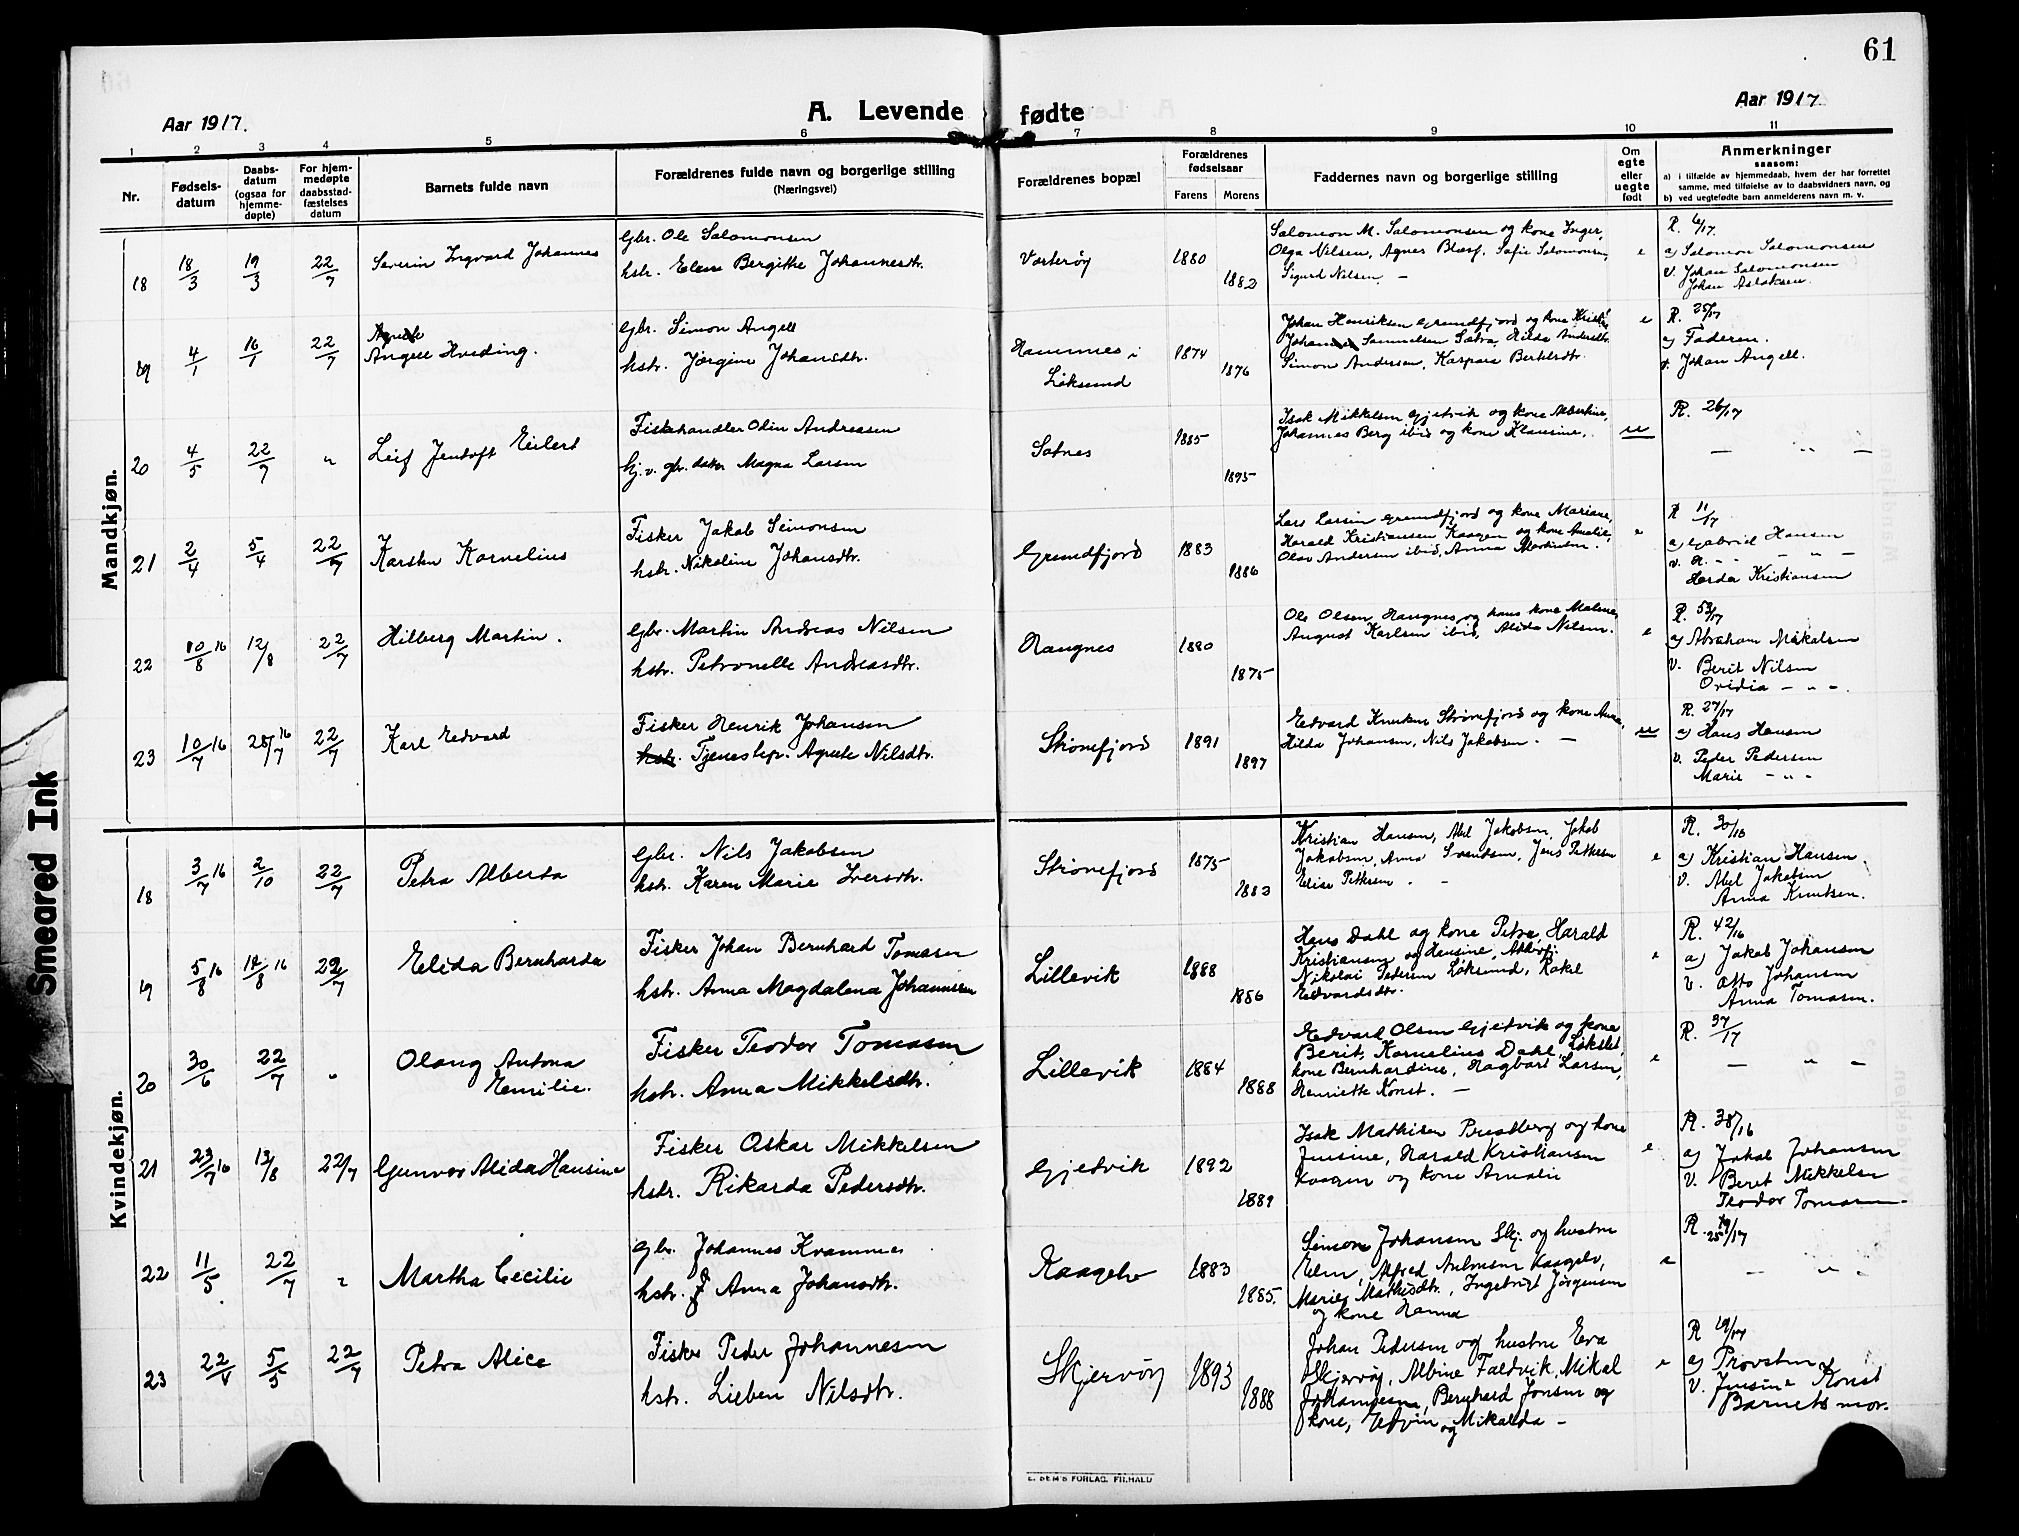 61
Aar 1917.
A. Levende fødte
Aar 1917.
1 2 3 4 5 6 7 8 9 10 11
Nr.
Fødsels-
datum
Daabs-
datum
(ogsaa for
hjemme-
døpte)
For hjem-
medøpte
daabsstad-
fæstelses
datum
Barnets fulde navn
Forældrenes fulde navn og borgerlige stilling
(Næringsvei)
Forældrenes bopæl
Forældrenes
fødselsaar
Farens Morens
Faddernes navn og borgerlige stilling
Om
egte
eller
uegte
født
Anmerkninger
saasom:
a) i tilfælde av hjemmedaab, hvem der har forrettet
samme, med tilføielse av to daabsvidners navn, og
b) ved uegtefødte barn anmelderens navn m. v.
Mandkjøn.
18 18/3 19/3 22/7 Severin Ingvard Johannes
Gbr. Ole Salomonsen
hstr. Elen Bergitte Johannesdtr.
Vorterøy 1880 1882
Salomon M. Salomonsen og kone Inger,
Olga Nilsen, Agnes Blæsf, Sofie Salomonsen,
Sigurd Nilsen. —
e
R. 6/17.
a) Salomon Salomonsen
v. Johan Salomonsen
Johan Aslaksen.
19 4/1 16/1 22/7
Angell Hveding.
Gbr. Simon Angell
hstr. Jørgine Johansdtr.
Hamnes i
Løksund
1874 1876
Johan Henriksen Grundfjord og kone
Samuelsen Sætra, Hilda Andersdtr.
Simon Andersen, Kaspara Bertelsdtr.
e
R. 25/17
a) Faderen.
v. Johan Angell.
20 4/5 22/7 " Leif Jentoft Eilert
Fiskehandler Odin Andreasen
hj. v. gbr. datter Magna Larsen
Sotnes 1885 1895
Isak Mikkelsen Gjetvik og kone Albertine,
Johannes Berg ibid og kone Klausine,.
u
R. 26/17
— " —
21 2/4 5/4 22/7 Karsten Kornelius
Fisker Jakob Simonsen
hstr. Nikoline Johansdtr.
Grundfjord 1883 1886
Lars Larsen Grundfjord og kone Mariane,
Harald Kristiansen Kaagen og kone Amalie,
Olav Andersen ibid, Anna Martinsen.
e
R 11/17
a) Gabriel Hansen
v. H. - " -
Herda Kristiansen
22 10/8 16 12/8 22/7 Hilberg Martin.
Gbr. Martin Andreas Nilsen
hstr. Petronelle Andreasdtr.
Haugnes 1880 1875
Ole Olsen Haugnes og hans kone Malene,
August Karlsen ibid, Alida Nilsen.
e
R. 53/17
a) Abraham Mikalsen
v. Berit Nilsen
Ovidia — " — .
23 10/7 16 28/7 16 22/7 Karl Edvard
Fisker Henrik Johansen
hstr. Tjenestep. Agnete Nilsdtr.
Strønefjord 1891 1897
Edvard Knutsen Strønefjord og kone Anna,
Hilda Johansen, Nils Jakobsen. —
u
R. 27/17
a) Hans Hansen
v. Peder Pedersen
Marie - " -
Kvindekjøn.
18 3/7 16 2/10 22/7 Petra Alberta
Gbr. Nils Jakobsen
hstr. Karen Marie Iversdtr.
Strønefjord 1875 1883
Kristian Hansen, Abel Jakobsen, Jakob
Jakobsen, Anna Svendsen, Jens Pettersen
Elise Pettersen. -
e
R. 30/16
a) Kristian Hansen.
v. Abel Jakobsen
Anna Knutsen.
19 5/8 16 18/8 16 22/7 Elida Bernharda
Fisker Johan Bernhard Tomasen
hstr. Anna Magdalena Johannesen
Lillevik 1888 1886
Hans Dahl og kone Petra, Harald
Kristiansen og Hansine,
Nikolai Pedersen Løksund, Rakel
Edvardsdtr.
e
R. 42/16
a) Jakob Johansen
v. Otto Johansen
Anna Tomasen.
20 30/6 22/7 " Olaug Antona
Emilie.
Fisker Teodor Tomasen
hstr. Anna Mikkelsdtr.
Lillevik 1884 1888
Edvard Olsen Gjetvik og kone
Berit, Kornelius Dahl Løkslet,
kone Bernhardine, Dagbart Larsen,
Henriette Konst. —
e
R. 37/17
— " —
21 23/7 16 13/8 22/7 Gunvor Alida Hansine
Fisker Oskar Mikkelsen
hstr. Rikarda Pedersdtr.
Gjetvik 1892 1889
Isak Mathisen Prestberg og kone
Jensine, Harald Kristiansen
Kaagen og kone Amalie
e
R. 38/16
a) Jakob Johansen
v. Beret Mikkelsen
Teodor Tomasen
22 11/5 22/7 " Martha Cecilie
Gbr. Johannes Kvamnes
hstr. Anna Johansdtr.
Kaagelv 1883 1885.
Simon Johansen Skj. og hustru
Elen, Alfred Antonsen Kaagelv,
Marie Mathisdtr., Ingebrigt Jørgensen
og kone Hanna
e
R. 25/17
— " —
23 22/4 5/5 22/7 Petra Alice
Fisker Peder Johannesen
hstr. Lieben Nilsdtr.
Skjervøy 1893 1888
Johan Pedersen og hustru Eva
Skjervøy, Albine Faldvik, Mikal
Johannesen, Bernhard Jonsen og
kone, Edvin og Mikalda —
e
R 19/17
a) Provsten
v. Jensine Konst
Barnets mor.
E. SEM'S FORLAG, FR.HALD
Smeared Ink